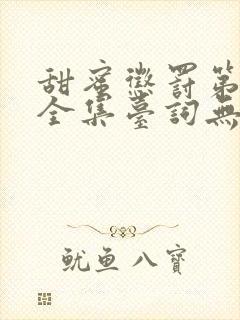 甜蜜懲罰第
全集臺詞無
魷魚八寶